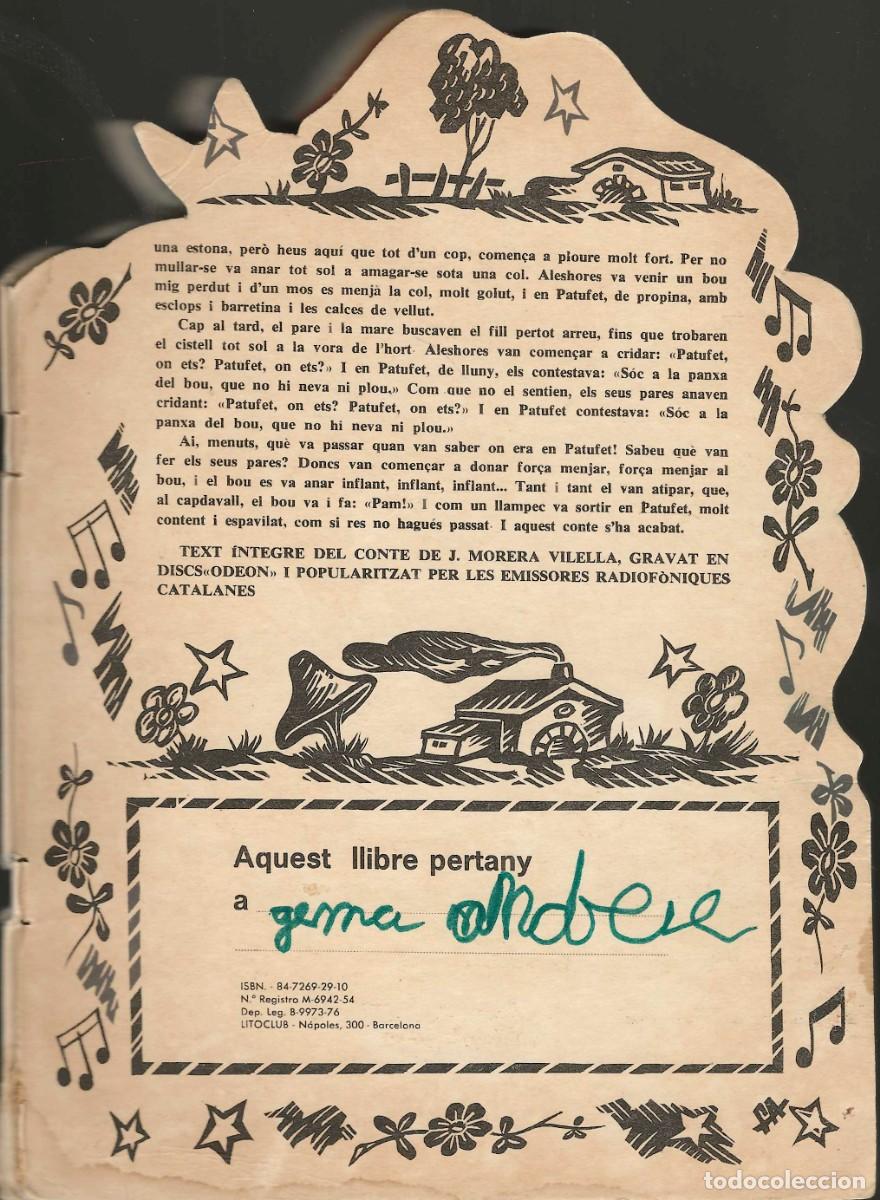 una estona, però heus aquí que tot d'un cop, comença a ploure molt fort. Per no
mullar-se va anar tot sol a amagar-se sota una col. Aleshores va venir un bou
mig perdut i d'un mos es menjà la col, molt golut, i en Patufet, de propina, amb
esclops i barretina i les calces de vellut.
Cap al tard, el pare i la mare buscaven el fill pertot arreu, fins que trobaren
el cistell tot sol a la vora de l'hort. Aleshores van començar a cridar: «Patufet,
on ets? Patufet, on ets?» I en Patufet, de lluny, els contestava: «Sóc a la panxa
del bou, que no hi neva ni plou.» Com que no el sentien, els seus pares anaven
cridant: «Patufet, on ets? Patufet, on ets?» I en Patufet contestava: «Sóc a la
panxa del bou, que no hi neva ni plou.»
Ai, menuts, què va passar quan van saber on era en Patufet! Sabeu què van
fer els seus pares? Doncs van començar a donar força menjar, força menjar al
bou, i el bou es va anar inflant, inflant, inflant... Tant i tant el van atipar, que,
al capdavall, el bou va i fa: «Pam!» I com un llampec va sortir en Patufet, molt
content i espavilat, com si res no hagués passat. I aquest conte s'ha acabat.
TEXT ÍNTEGRE DEL CONTE DE J. MORERA VILELLA, GRAVAT EN
DISCS«ODEON» I POPULARITZAT PER LES EMISSORES RADIOFÒNIQUES
CATALANES
Aquest llibre pertany
a gema
ISBN. - 84-7269-29-10
N.º Registro M-6942-54
Dep. Leg. B-9973-76
LITOCLUB - Nápoles, 300 - Barcelona
todocoleccion